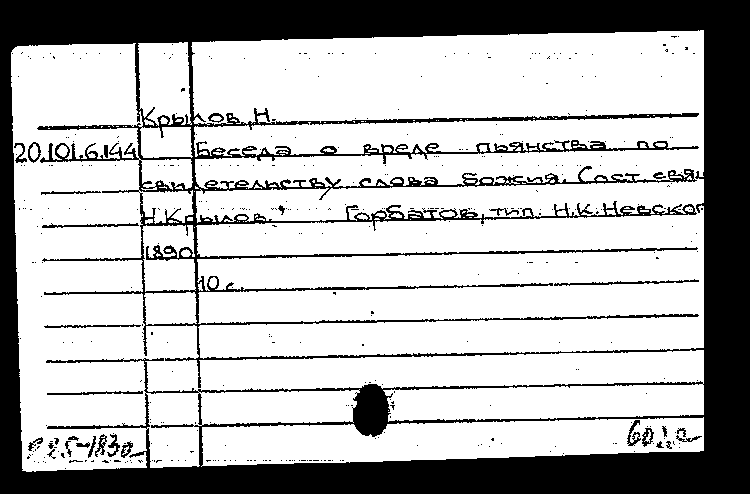 Крылов, Н.
20.101.6.144 Беседа о вреде пьянства по
свидетельству слова Божия. Сост. свящ
Н. Крылов. Горбатов, тип. Н.К. Невског
1890.
10 с.